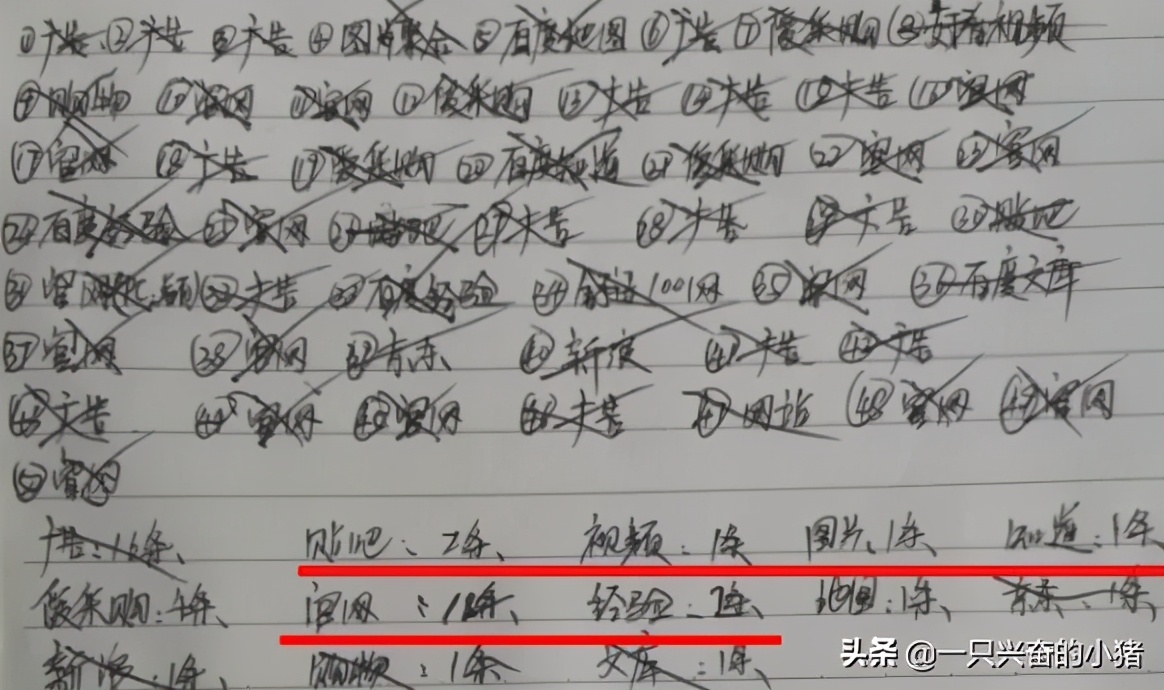 ①广告、②广告 ③广告 ④图片集合 ⑤百度地图 ⑥广告 ⑦爱采购 ⑧好看视频
⑨购物 ⑩官网 ⑪官网 ⑫爱采购 ⑬广告 ⑭广告 ⑮广告 ⑯官网
⑰官网 ⑱广告 ⑲爱采购 ⑳百度知道 ㉑爱采购 ㉒官网 ㉓官网
㉔百度经验 ㉕官网 ㉖贴吧 ㉗广告 ㉘广告 ㉙广告 ㉚贴吧
㉛官网 ㉜广告 ㉝百度经验 ㉞1001网 ㉟官网 ㊱百度文库
㊲官网 ㊳官网 ㊴京东 ㊵新浪 ㊶广告 ㊷广告
㊸广告 ㊹官网 ㊺官网 ㊻广告 ㊼网站 ㊽官网 ㊾官网
㊿官网
广告:16条、 贴吧:2条、 视频:1条 图片:1条、 知道:1条
爱采购:4条、 官网:18条、 经验:2条、 地图:1条、 京东:1条、
新浪:1条、 购物:1条 文库:1条、
头条 @一只兴奋的小猪